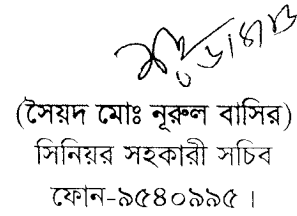 (সৈয়দ মোঃ নূরুল বাসির)
সিনিয়র সহকারী সচিব
ফোন-৯৫৪০৯৯৫ ।